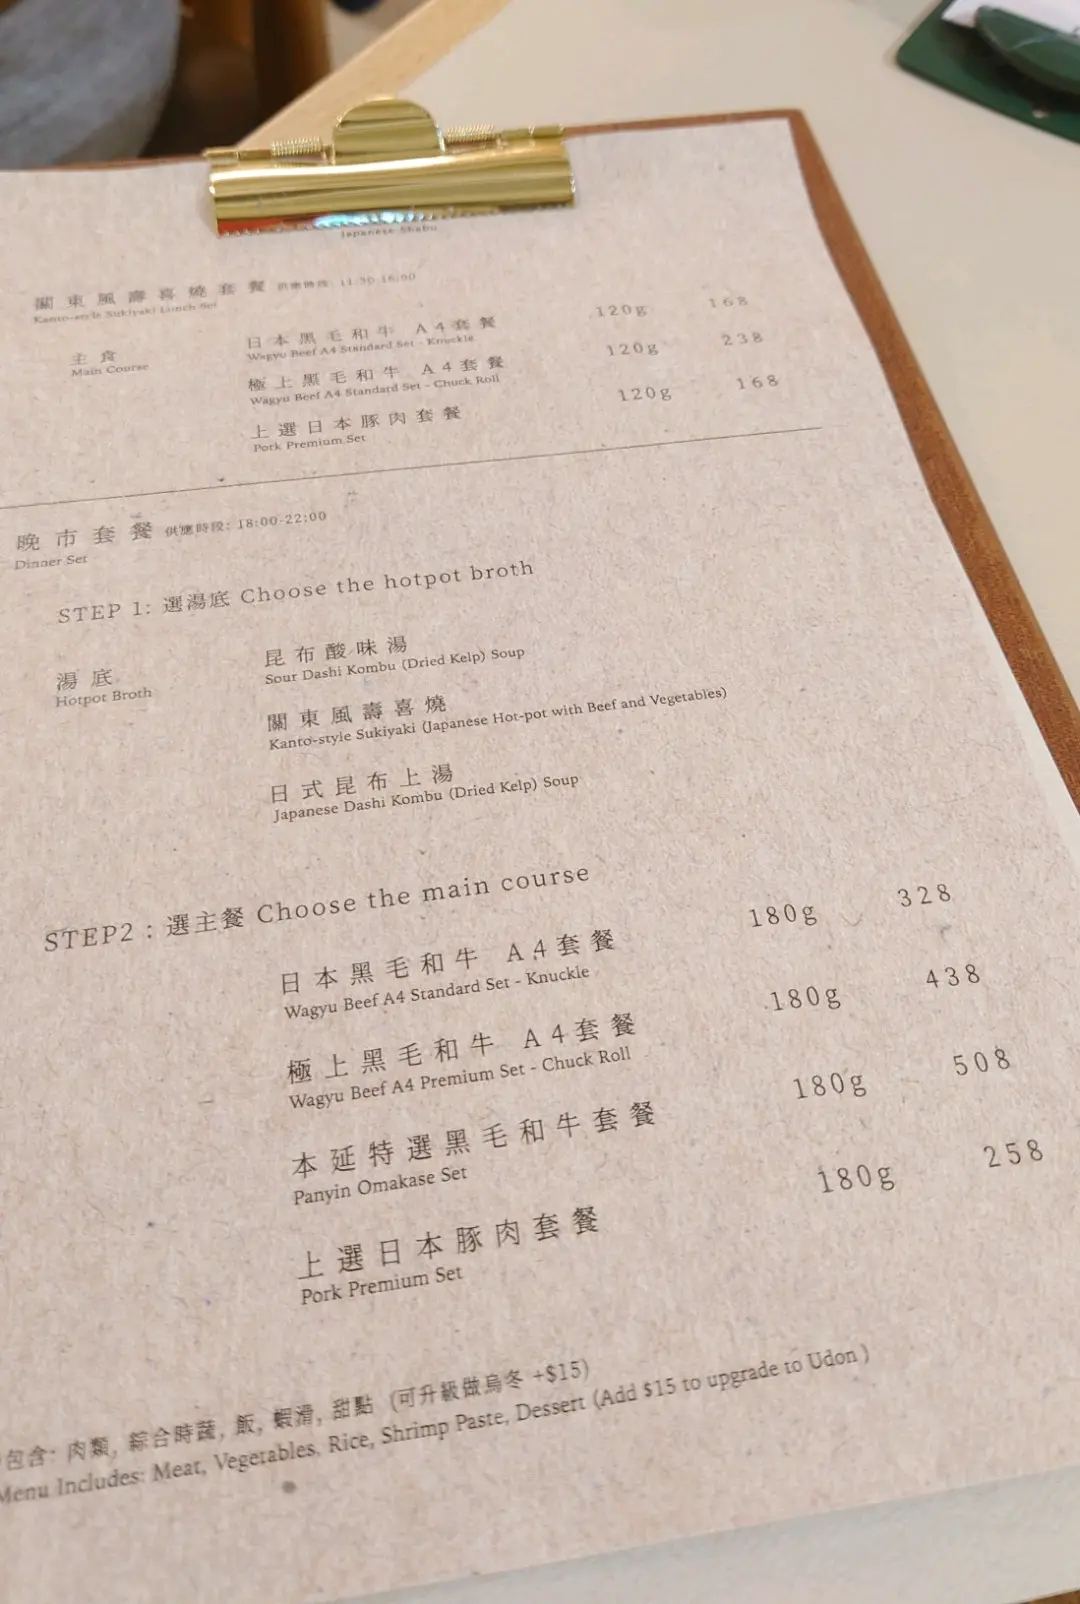 Japanese Shabu
關東風壽喜燒套餐 供應時段: 11:30-16:00
Kanto-style Sukiyaki Lunch Set
主食
Main Course
日本黑毛和牛 A4套餐 120g 168
Wagyu Beef A4 Standard Set - Knuckle
極上黑毛和牛 A4套餐 120g 238
Wagyu Beef A4 Standard Set - Chuck Roll
上選日本豚肉套餐 120g 168
Pork Premium Set
晚市套餐 供應時段: 18:00-22:00
Dinner Set
STEP 1: 選湯底 Choose the hotpot broth
湯底
Hotpot Broth
昆布酸味湯
Sour Dashi Kombu (Dried Kelp) Soup
關東風壽喜燒
Kanto-style Sukiyaki (Japanese Hot-pot with Beef and Vegetables)
日式昆布上湯
Japanese Dashi Kombu (Dried Kelp) Soup
STEP2 : 選主餐 Choose the main course
日本黑毛和牛 A4套餐 180g 328
Wagyu Beef A4 Standard Set - Knuckle
極上黑毛和牛 A4套餐 180g 438
Wagyu Beef A4 Premium Set - Chuck Roll
本延特選黑毛和牛套餐 180g 508
Panyin Omakase Set
上選日本豚肉套餐 180g 258
Pork Premium Set
包含: 肉類, 綜合時蔬, 飯, 蝦滑, 甜點 (可升級做烏冬 +$15)
Menu Includes: Meat, Vegetables, Rice, Shrimp Paste, Dessert (Add $15 to upgrade to Udon )